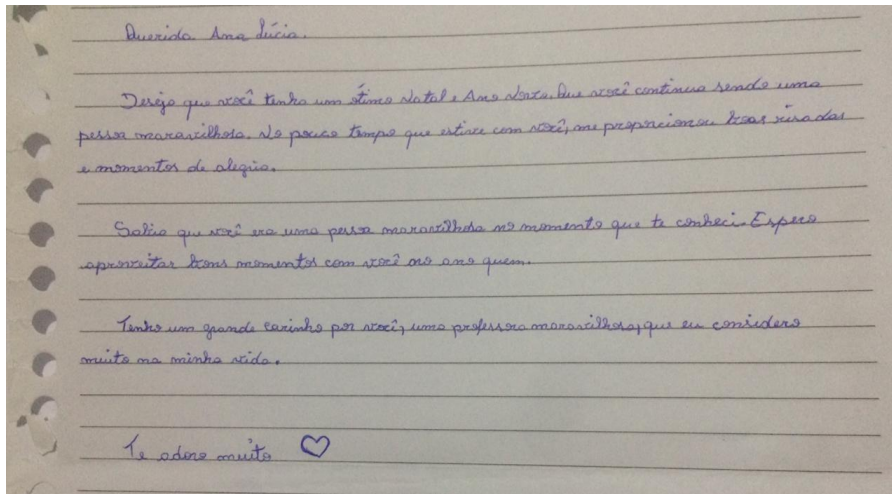 Querida Ana Lúcia.
Desejo que você tenha um ótimo Natal e Ano Novo. Que você continua sendo uma
pessoa maravilhosa. No pouco tempo que estive com você, me proporcionou boas risadas
e momentos de alegria.
Sabia que você era uma pessoa maravilhosa no momento que te conheci. Espero
aproveitar bons momentos com você no ano quem.
Tenho um grande carinho por você, uma professora maravilhosa, que eu considero
muito na minha vida.
Te adoro muito ♡